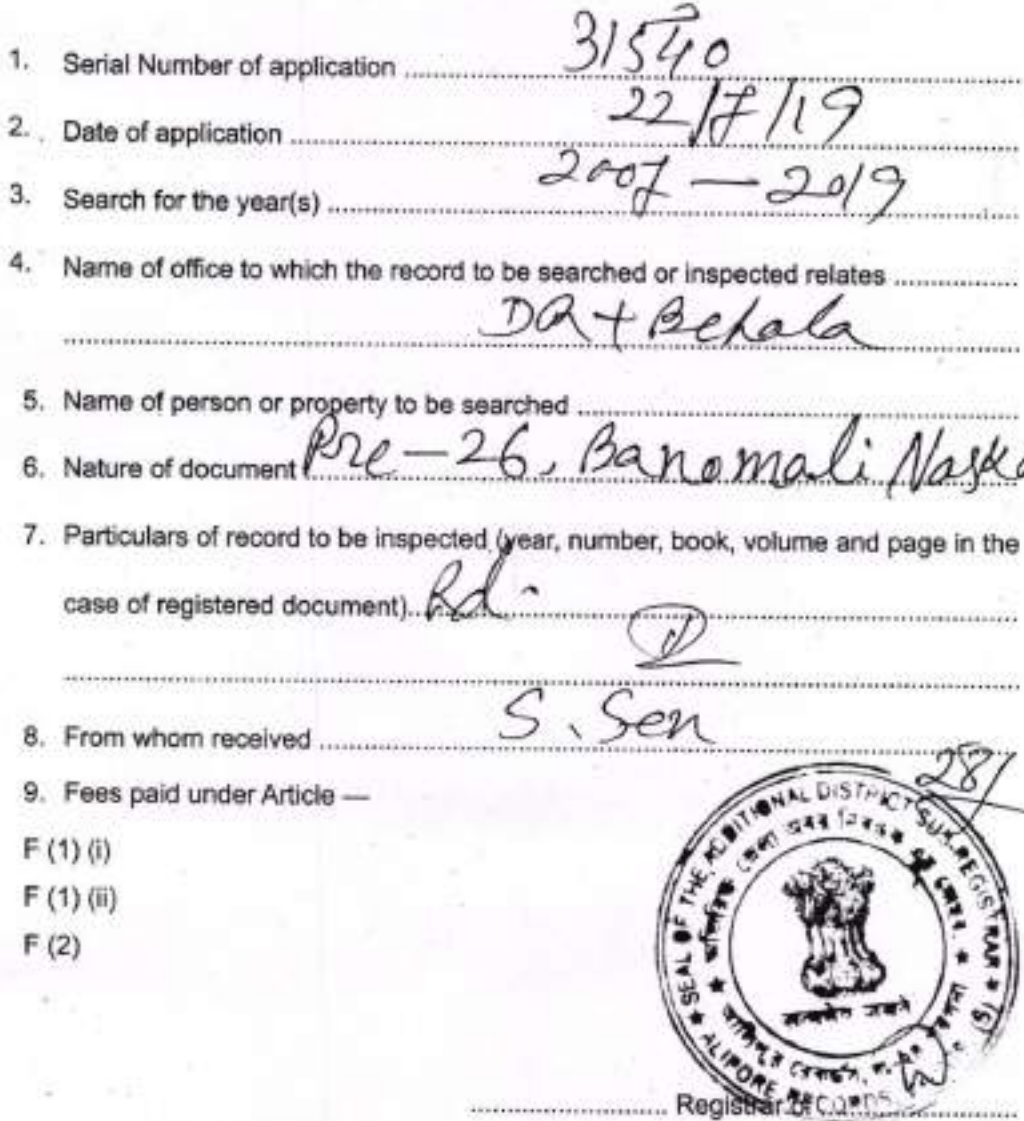 1. Serial Number of application .......... 31540
2. Date of application .......... 22/7/19
3. Search for the year(s) .......... 2007 — 2019
4. Name of office to which the record to be searched or inspected relates ..........
DR + Behala
5. Name of person or property to be searched ..........
6. Nature of document Pre - 26, Banomali Naska
7. Particulars of record to be inspected (year, number, book, volume and page in the
case of registered document). Rd.
8. From whom received .......... S. Sen
28/
9. Fees paid under Article —
F (1) (i)
F (1) (ii)
F (2)
SEAL OF THE ADDITIONAL DISTRICT SUB-REGISTRAR
ALIPORE RECORDS
सत्यमेव जयते
.......... Registrar of ..........